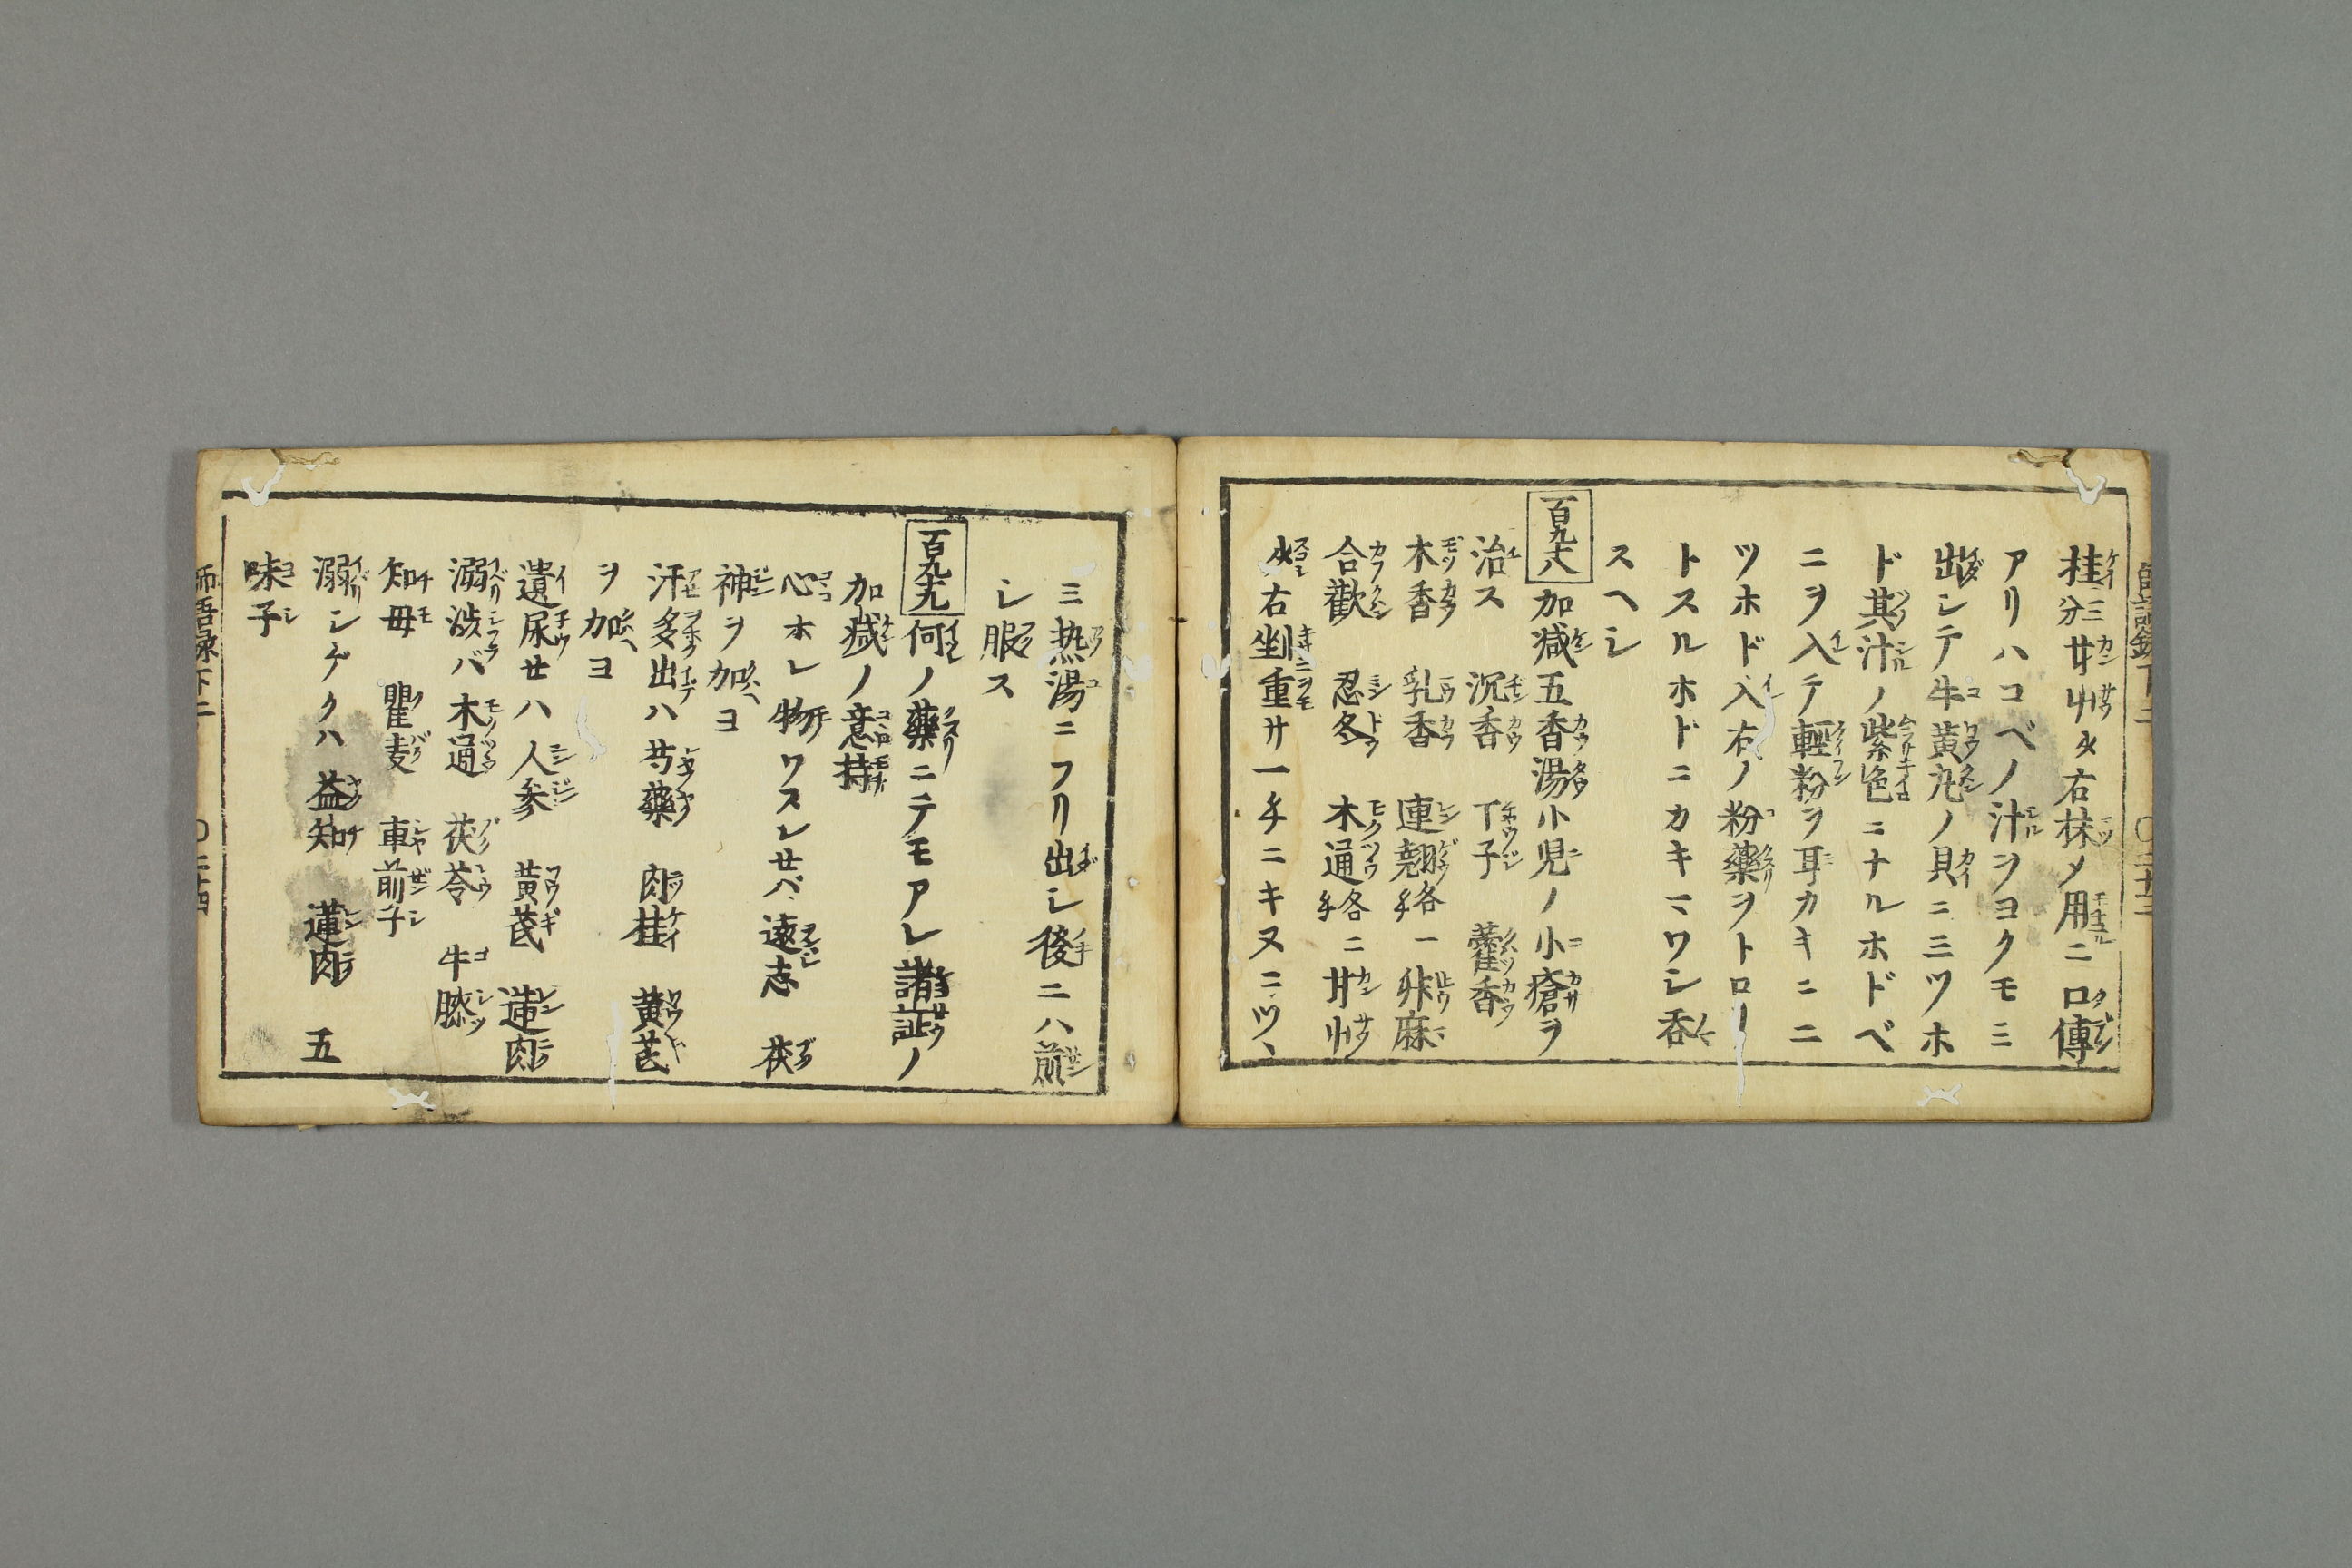 桂三分甘艸少右抹メ用ニ口傳
アリハコベノ汁ヲヨクモミ
出シテ牛黄丸ノ貝ニ三ツホ
ド其汁ノ紫色ニナルホドベ
ニヲ入テ輕粉ヲ耳カキニ二
ツホド入右ノ粉藥ヲトロー
トスルホドニカキマワシ呑
スヘシ
百九十八 加减五香湯小児ノ小瘡ヲ
治ス 沉香 丁子 藿香
木香 乳香 連翹各一チ 升麻
合歡 忍冬 木通各二チ 甘艸
少右剉重サ一チニキヌニツヽ
ミ热湯ニフリ出シ後ニハ前
シ服ス
百九十九 何ノ藥ニテモアレ諸証ノ
加减ノ意持
心ホレ物ワスレせバ遠志 茯
神ヲ加ヨ
汗多出ハ芍藥 肉桂 黄芪
ヲ加ヨ
遺尿せハ人参 黄芪 蓮肉
溺渋バ木通 茯苓 牛膝
知母 瞿麦 車前子
溺シゲクハ益知 蓮肉 五
味子
師語録下二 〇二十四